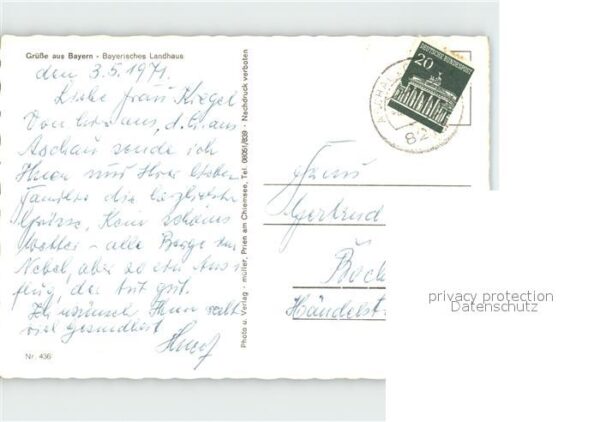 Grüße aus Bayern - Bayerisches Landhaus
den 3.5.1971.
Liebe Frau Kregel
Von hier aus, d.h. aus
Aschau sende ich
Ihnen und Ihrer lieben
Familie die herzlichsten
Grüsse. Kein schönes
Wetter - alle Berge im
Nebel, aber so ein Aus
flug, der tut gut.
Ich wünsch Ihnen recht
viel Gesundheit
Nr. 436
Photo u. Verlag - müller, Prien am Chiemsee, Tel. 08051/839 - Nachdruck verboten
DEUTSCHE BUNDESPOST
20
82
Frau
Gertrud
Boch
Händelst
privacy protection
Datenschutz